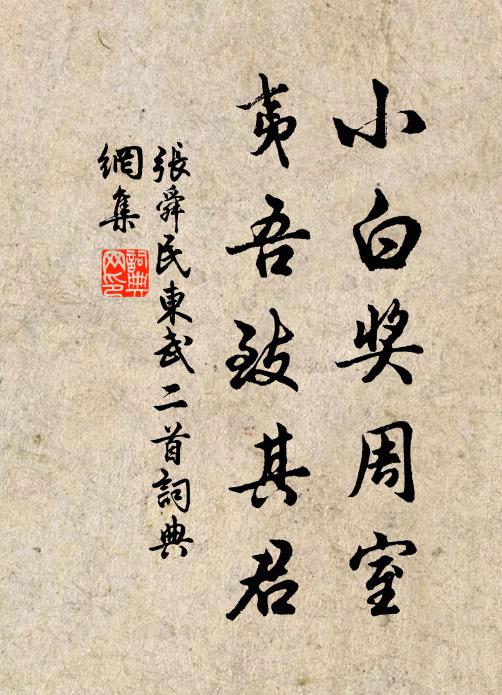 小白奖周室
夷吾致其君
張舜民東武二首詞典
網集
詞典网印